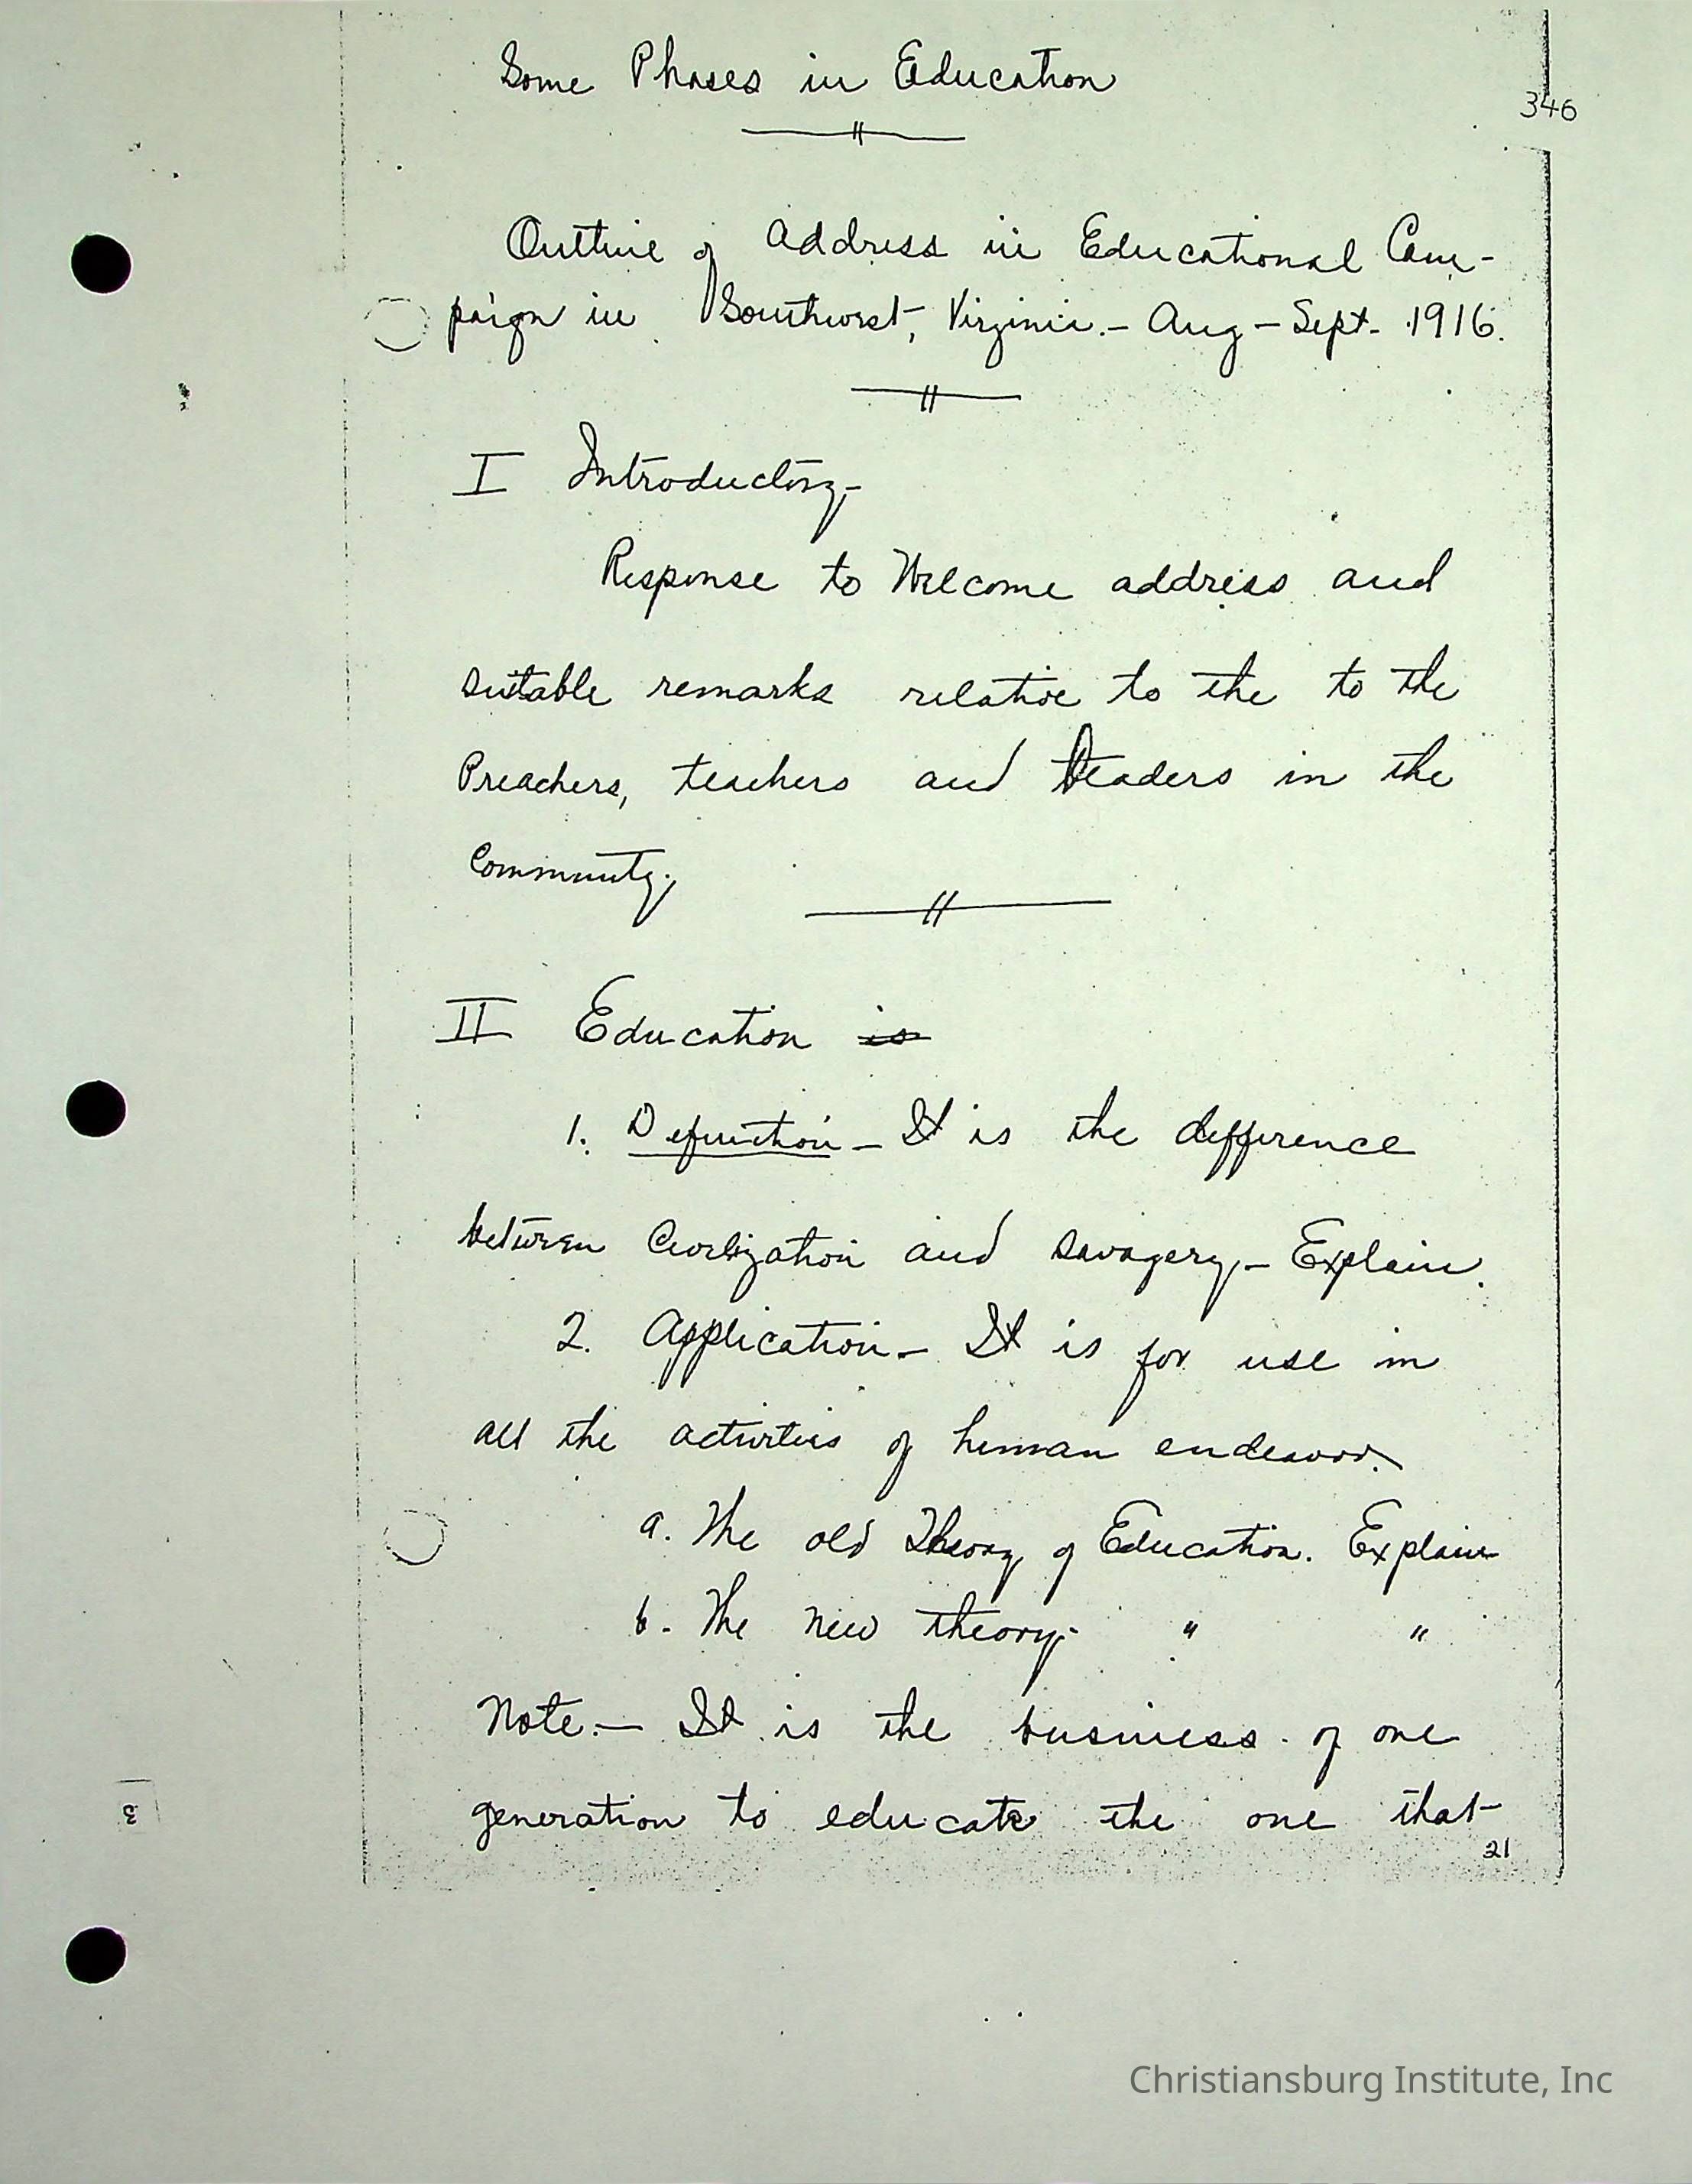 Some Phases in Education
346
Outline of Address in Educational Cam-
paign in Southwest, Virginia.- Aug - Sept. 1916.
I Introductory-
Response to Welcome address and
suitable remarks relative to the to the
Preachers, teachers and leaders in the
Community.
II Education is
1. Definition - It is the difference
between Civilization and savagery.- Explain.
2. Application.- It is for use in
all the activities of human endeavor.
a. The old Theory of Education. Explain
b. The new theory- " "
Note.- It is the business of one
generation to educate the one that
21
3
Christiansburg Institute, Inc